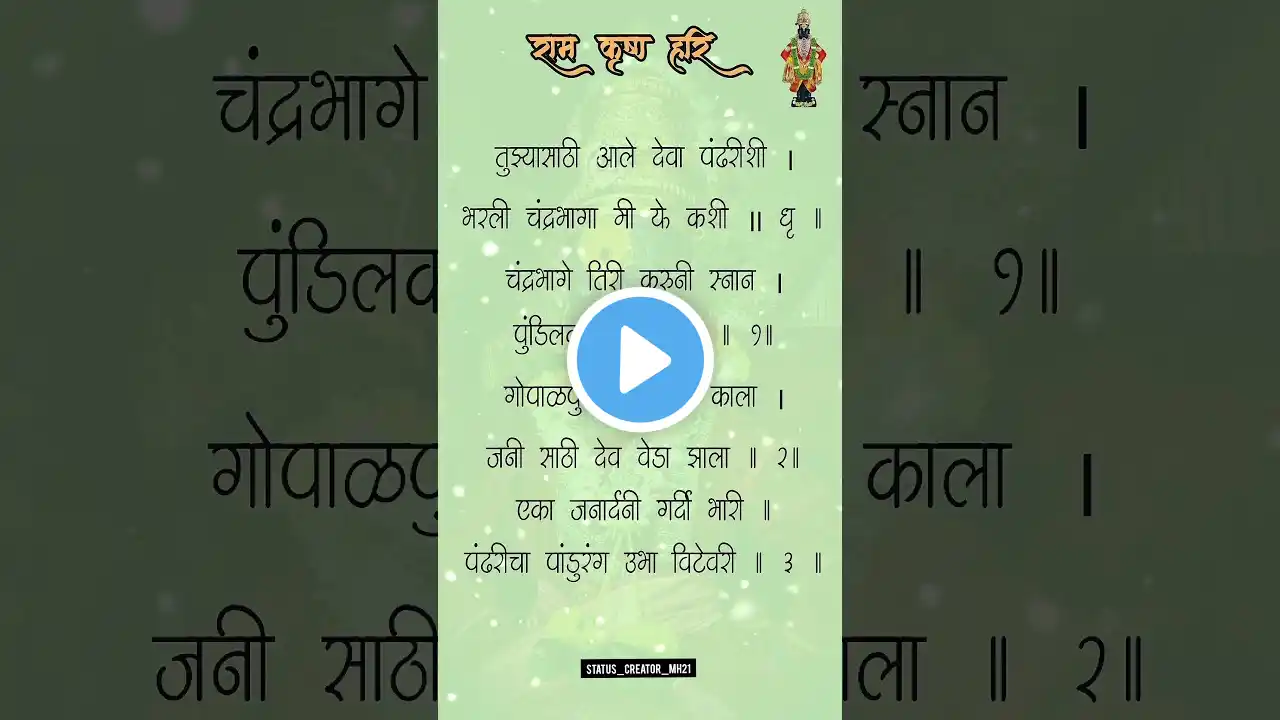 राम कृष्ण हरि
तुझ्यासाठी आले देवा पंढरीशी ।
भरली चंद्रभागा मी ये कशी ॥ धृ ॥
चंद्रभागे तिरी करुनी स्नान ।
॥ १॥
काला ।
जनी साठी देव वेडा झाला ॥ २॥
एका जनार्दनी गर्दी भारी ॥
पंढरीचा पांडुरंग उभा विटेवरी ॥ ३ ॥
STATUS_CREATOR_MH21